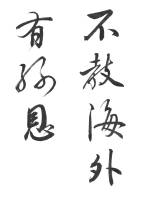 不教海外
有孤恩